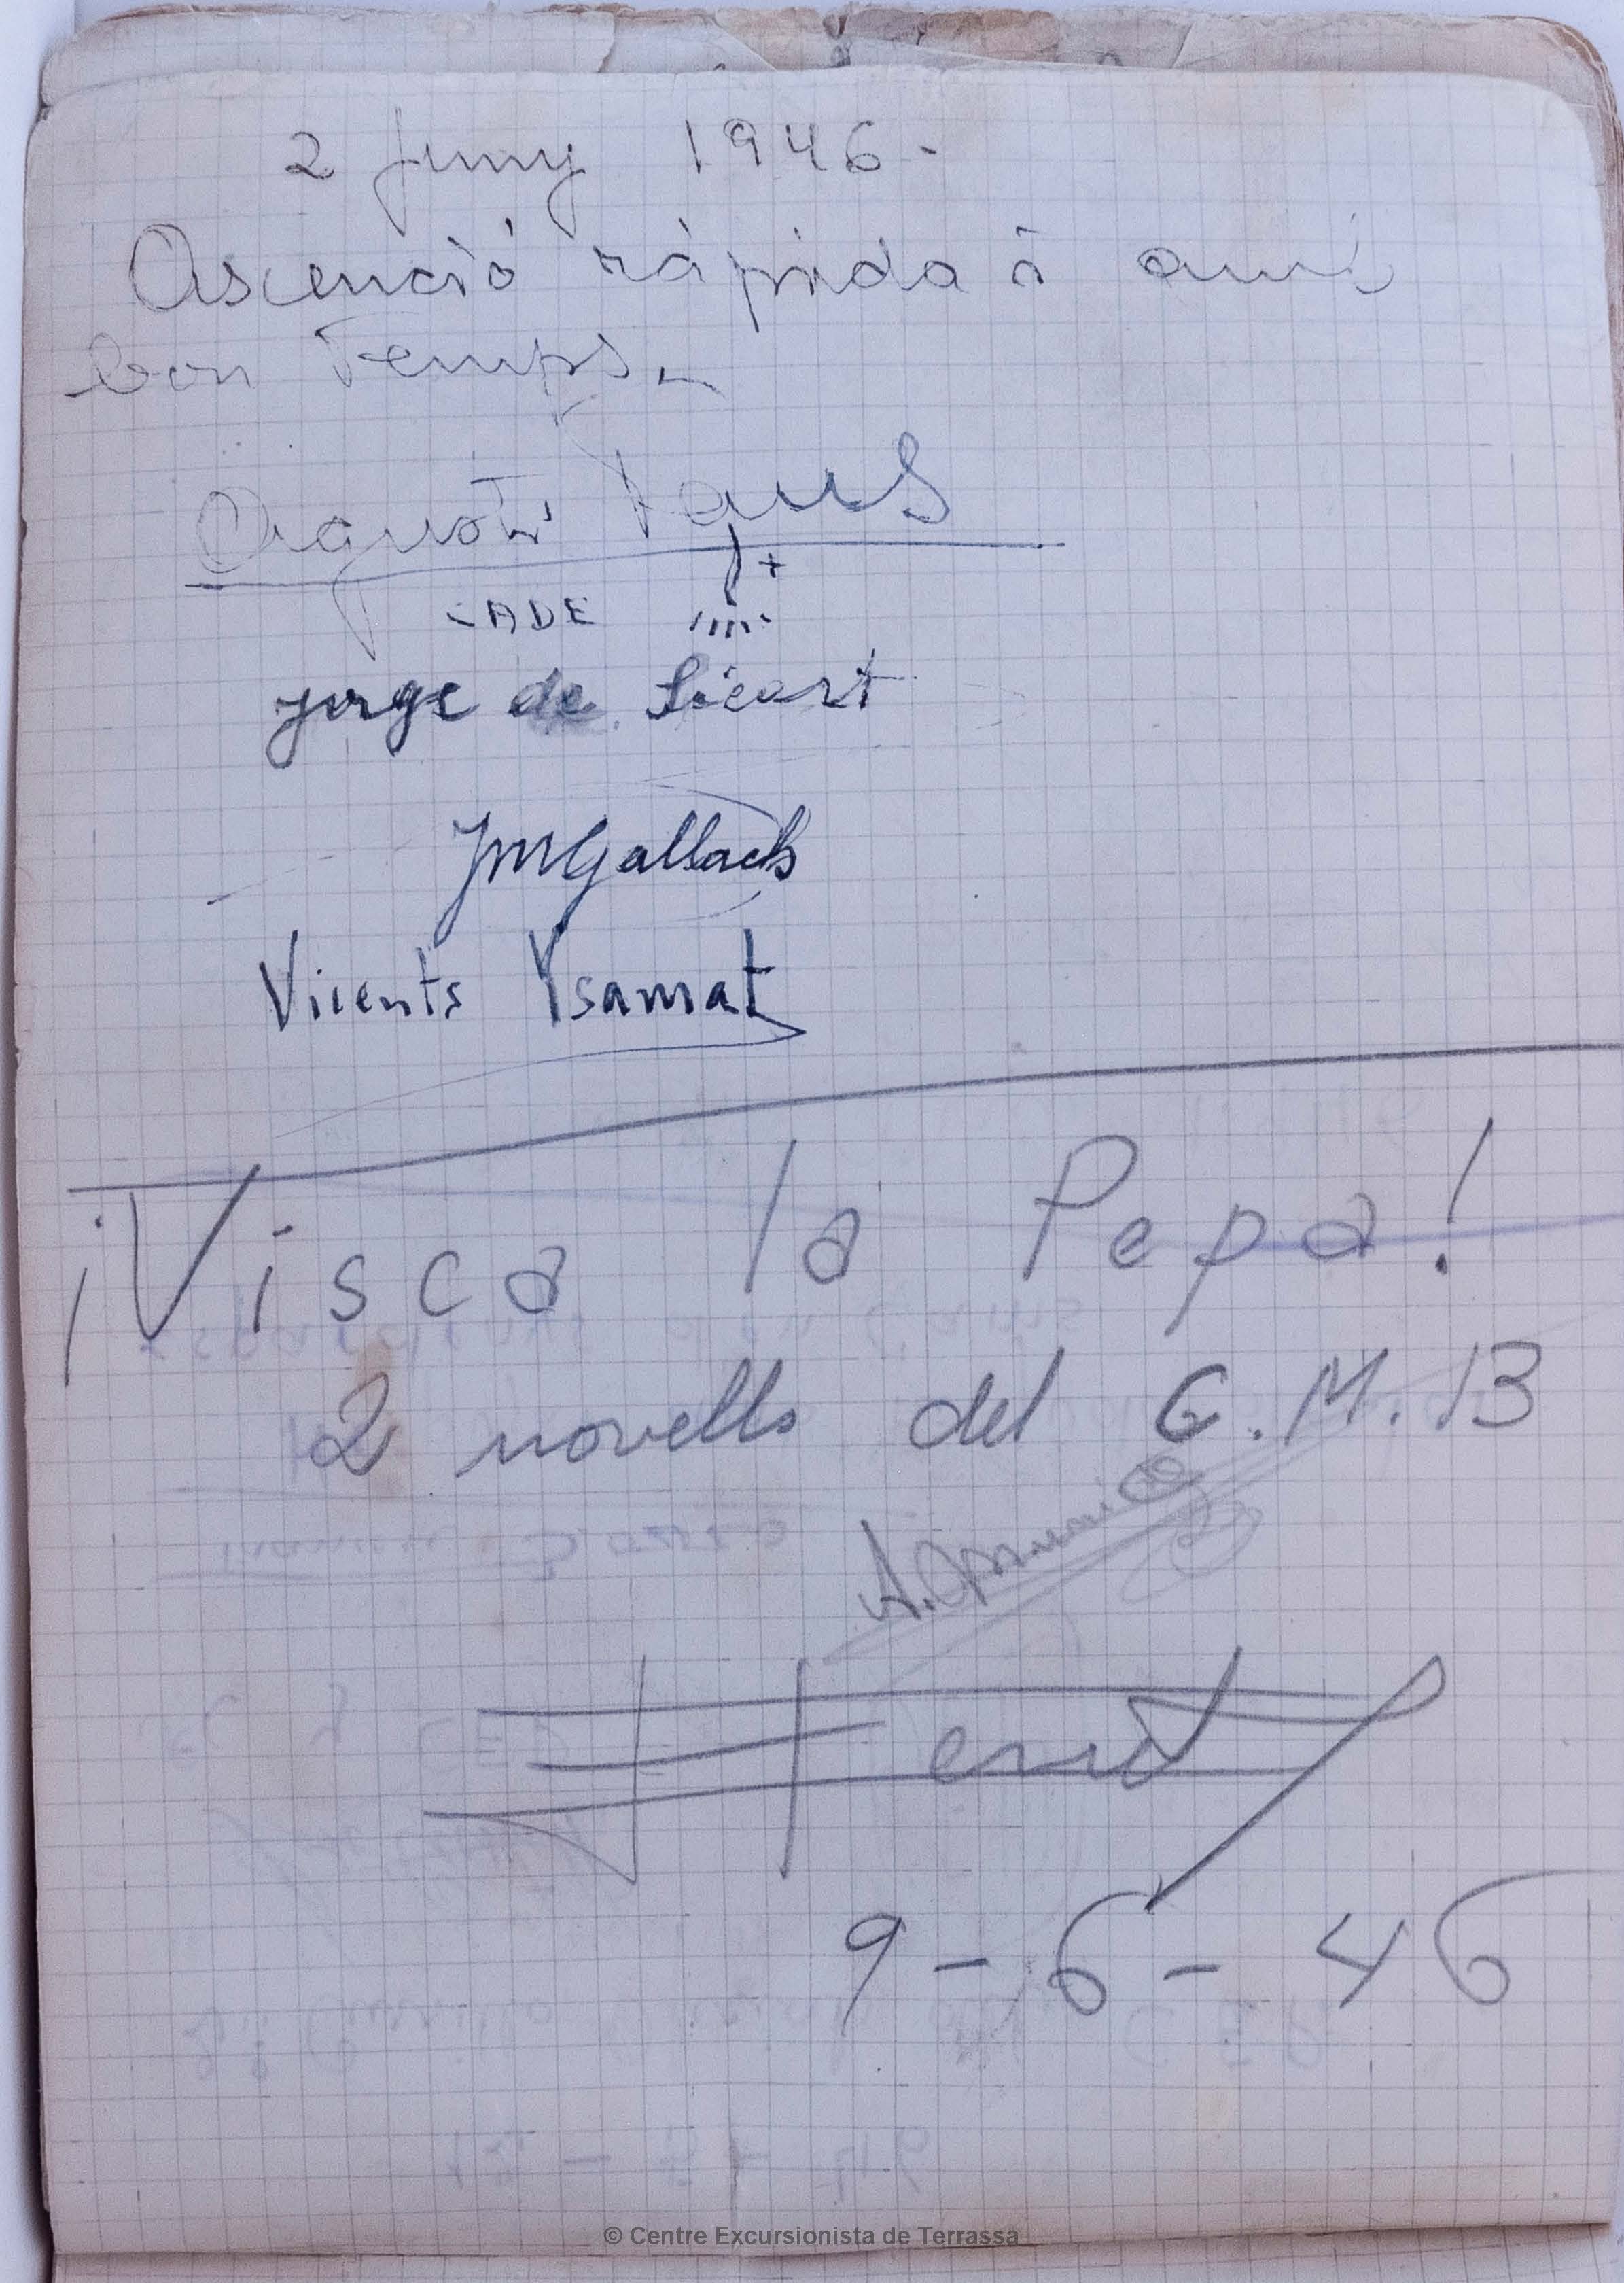 2 Juny 1946-
Ascenció ràpida i amb
bon Temps.
CADE
Jorge de Sicart
JMGallach
Vicents Ysamat
¡Visca la Pepa!
2 novells del G.M.B
A.
9-6-46
© Centre Excursionista de Terrassa